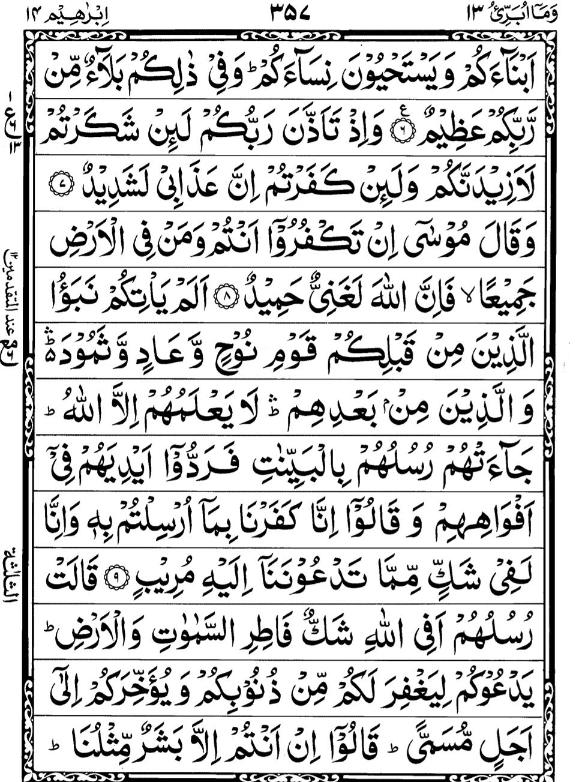 وَمَآ اُبَرِّئُ ١٣
٣٥٧
اِبْرٰهِيْم ١٤
اَبْنَآءَكُمْ وَيَسْتَحْيُوْنَ نِسَآءَكُمْ ؕ وَفِيْ ذٰلِكُمْ بَلَآءٌ مِّنْ
رَّبِّكُمْ عَظِيْمٌ ۟ع ﴿٦﴾ وَاِذْ تَاَذَّنَ رَبُّكُمْ لَئِنْ شَكَرْتُمْ
لَاَزِيْدَنَّكُمْ وَلَئِنْ كَفَرْتُمْ اِنَّ عَذَابِيْ لَشَدِيْدٌ ﴿٧﴾
وَقَالَ مُوْسٰٓى اِنْ تَكْفُرُوْٓا اَنْتُمْ وَمَنْ فِي الْاَرْضِ
جَمِيْعًا ۙ فَاِنَّ اللّٰهَ لَغَنِيٌّ حَمِيْدٌ ﴿٨﴾ اَلَمْ يَاْتِكُمْ نَبَؤُا
الَّذِيْنَ مِنْ قَبْلِكُمْ قَوْمِ نُوْحٍ وَّعَادٍ وَّثَمُوْدَ ۛؕ
وَالَّذِيْنَ مِنْۢ بَعْدِهِمْ ۛؕ لَا يَعْلَمُهُمْ اِلَّا اللّٰهُ ؕ
جَآءَتْهُمْ رُسُلُهُمْ بِالْبَيِّنٰتِ فَرَدُّوْٓا اَيْدِيَهُمْ فِيْٓ
اَفْوَاهِهِمْ وَقَالُوْٓا اِنَّا كَفَرْنَا بِمَآ اُرْسِلْتُمْ بِهٖ وَاِنَّا
لَفِيْ شَكٍّ مِّمَّا تَدْعُوْنَنَآ اِلَيْهِ مُرِيْبٍ ﴿٩﴾ قَالَتْ
رُسُلُهُمْ اَفِي اللّٰهِ شَكٌّ فَاطِرِ السَّمٰوٰتِ وَالْاَرْضِ ؕ
يَدْعُوْكُمْ لِيَغْفِرَ لَكُمْ مِّنْ ذُنُوْبِكُمْ وَيُؤَخِّرَكُمْ اِلٰٓى
اَجَلٍ مُّسَمًّى ؕ قَالُوْٓا اِنْ اَنْتُمْ اِلَّا بَشَرٌ مِّثْلُنَا ؕ
١
ع
٦
١٣
عند المتقدمين ١٢
الثلثة